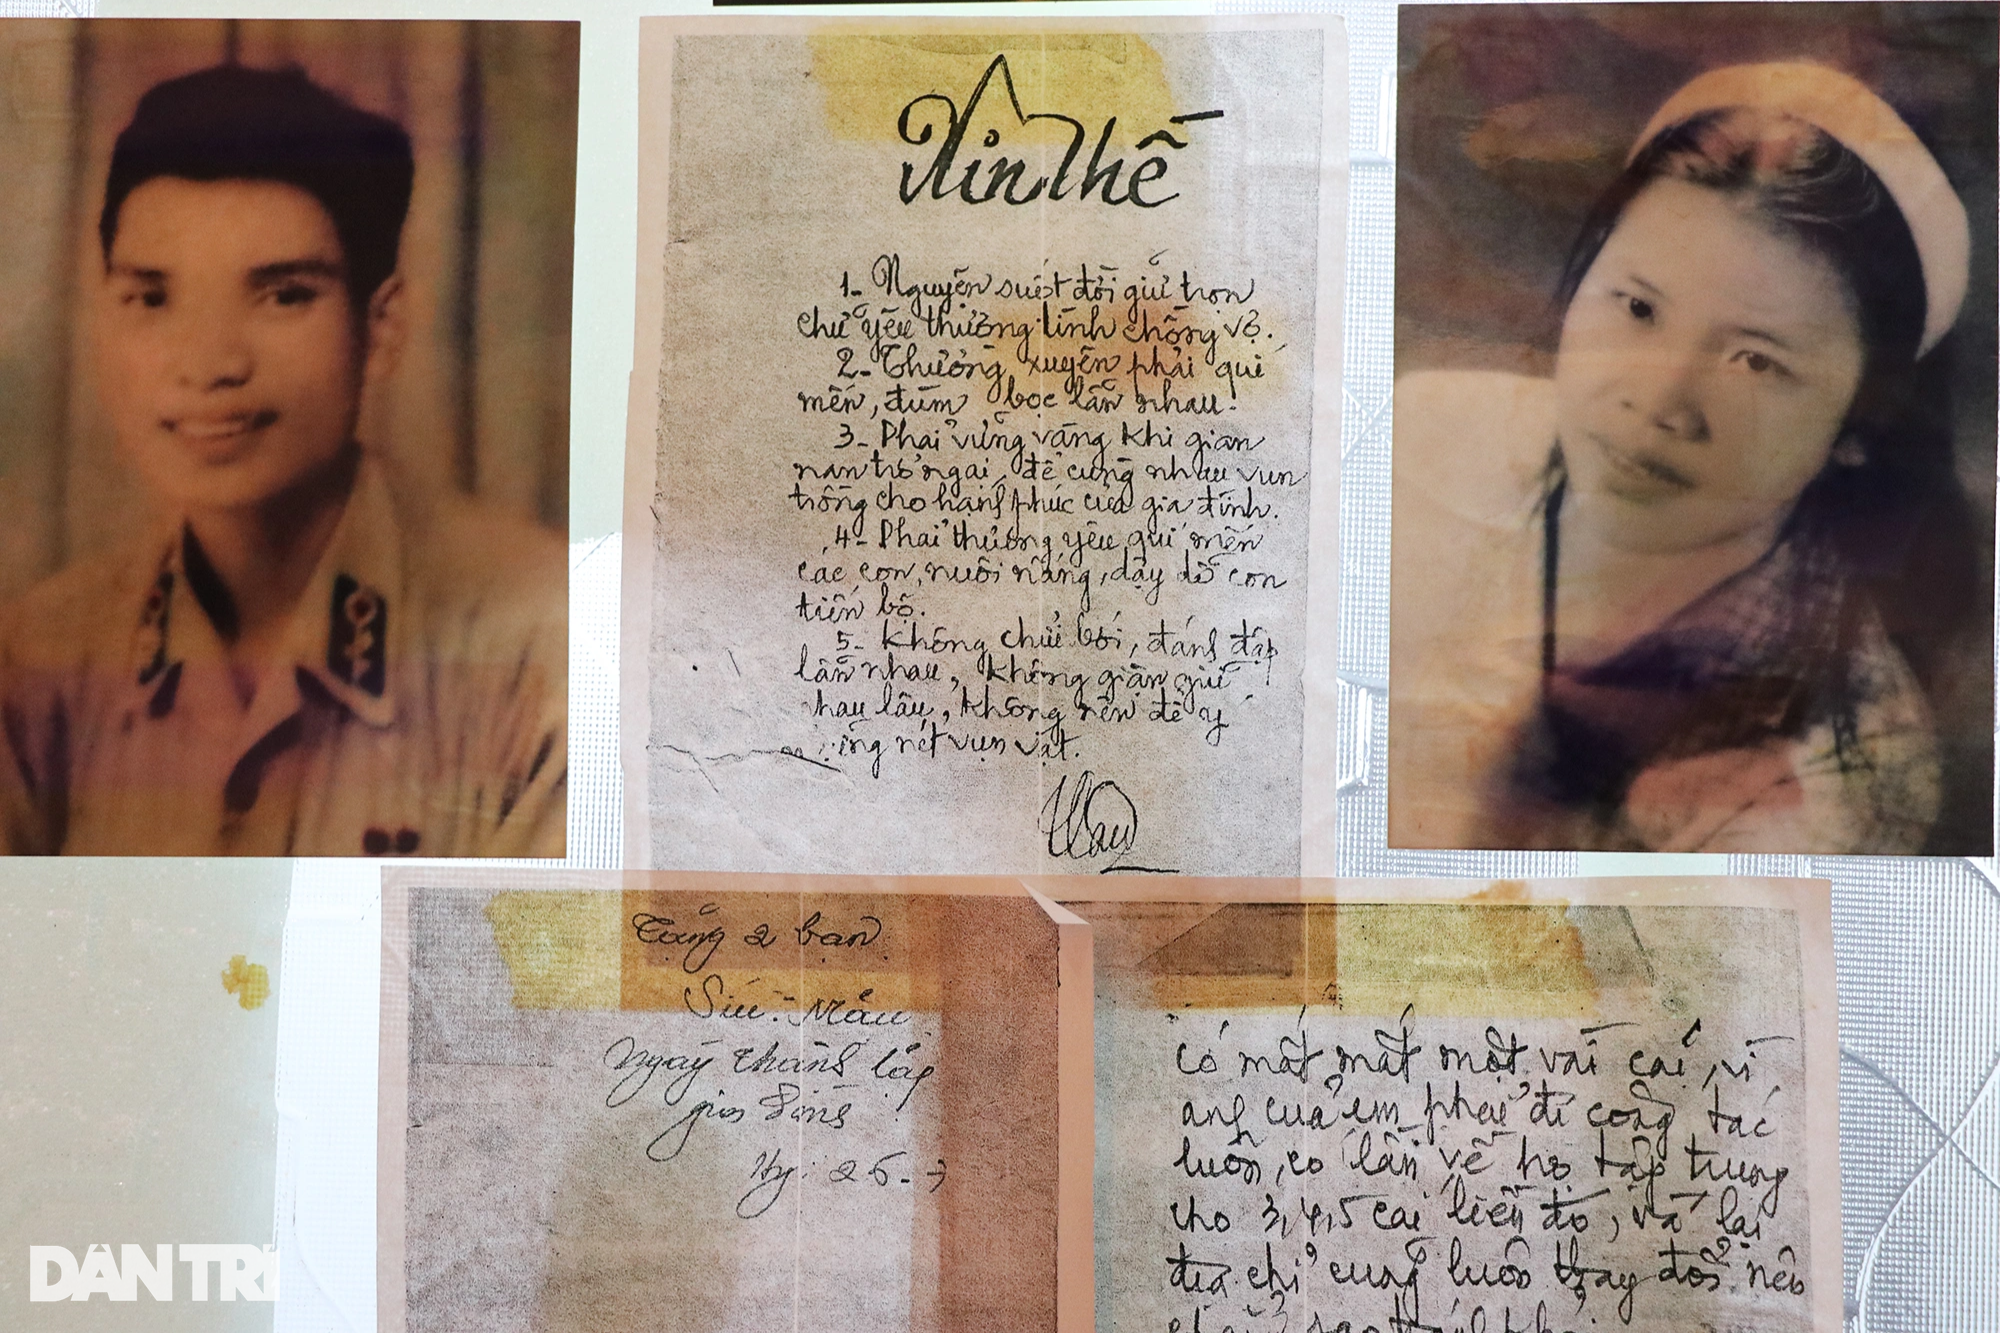 Xin Thề
1- Nguyện suốt đời giữ trọn
chữ yêu thương tình chồng vợ.
2- Thường xuyên phải quí
mến, đùm bọc lẫn nhau.
3- Phải vững vàng khi gian
nan trở ngại, để cùng nhau vun
trồng cho hạnh phúc của gia đình.
4- Phải thương yêu quí mến
các con, nuôi nấng, dạy dỗ con
tiến bộ.
5- Không chửi bới, đánh đập
lẫn nhau, không giận giữ
nhau lâu, không nên để ý
nét vụn vặt.
Tặng 2 bạn
Sửu - Mẫu
Ngày thành lập
gia đình
có mất mát một vài cái, vì
anh của em phải đi công tác
luôn, có lần về họ tập trung
cho 3, 4, 5 cái liền đó, và lại
địa chỉ cũng luôn thay đổi nên
DÂN TRÍ